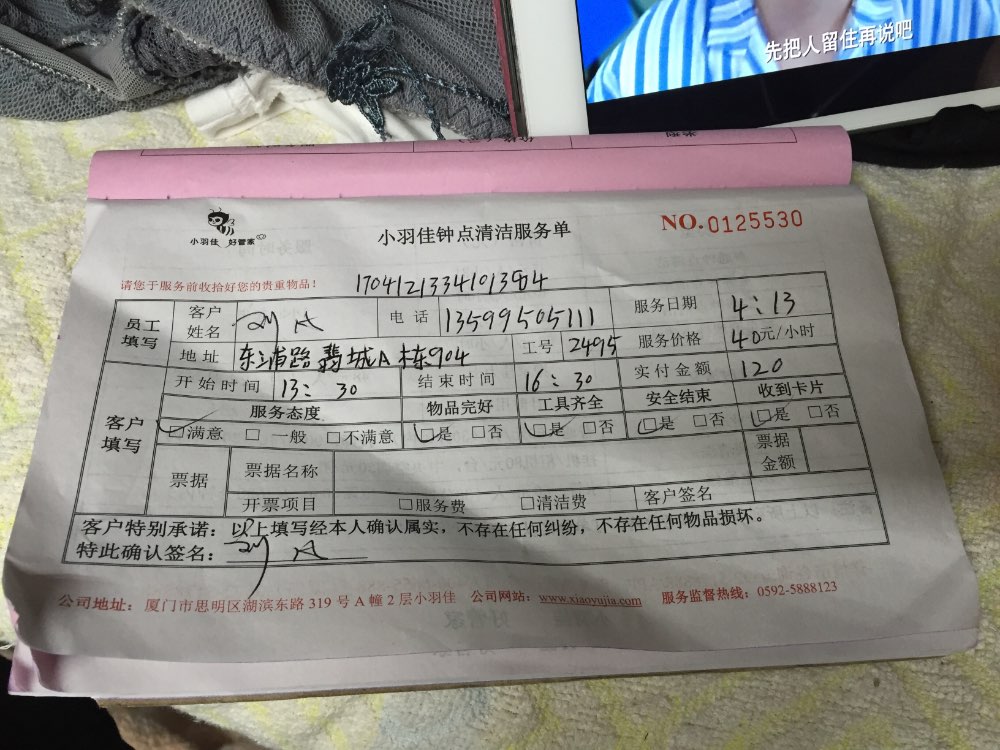 先把人留住再说吧
小羽佳 好管家
小羽佳钟点清洁服务单
NO.0125530
请您于服务前收拾好您的贵重物品！
员工填写 客户姓名 电话 13599505111 服务日期 4:13
地址 东浦路翡城A栋904 工号 2495 服务价格 40元/小时
客户填写 开始时间 13:30 结束时间 16:30 实付金额 120
服务态度 物品完好 工具齐全 安全结束 收到卡片
☑满意 □一般 □不满意 ☑是 □否 ☑是 □否 ☑是 □否 □是 □否
票据 票据名称 票据金额
开票项目 □服务费 □清洁费 客户签名
客户特别承诺：以上填写经本人确认属实，不存在任何纠纷，不存在任何物品损坏。
特此确认签名：
公司地址：厦门市思明区湖滨东路 319 号 A 幢 2 层小羽佳 公司网站：www.xiaoyujia.com 服务监督热线：0592-5888123